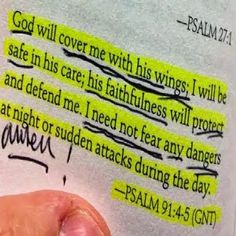 —PSALM 27:1
God will cover me with his wings; I will be
safe in his care; his faithfulness will protect
and defend me. I need not fear any dangers
at night or sudden attacks during the day.
amen!
—PSALM 91:4-5 (GNT)